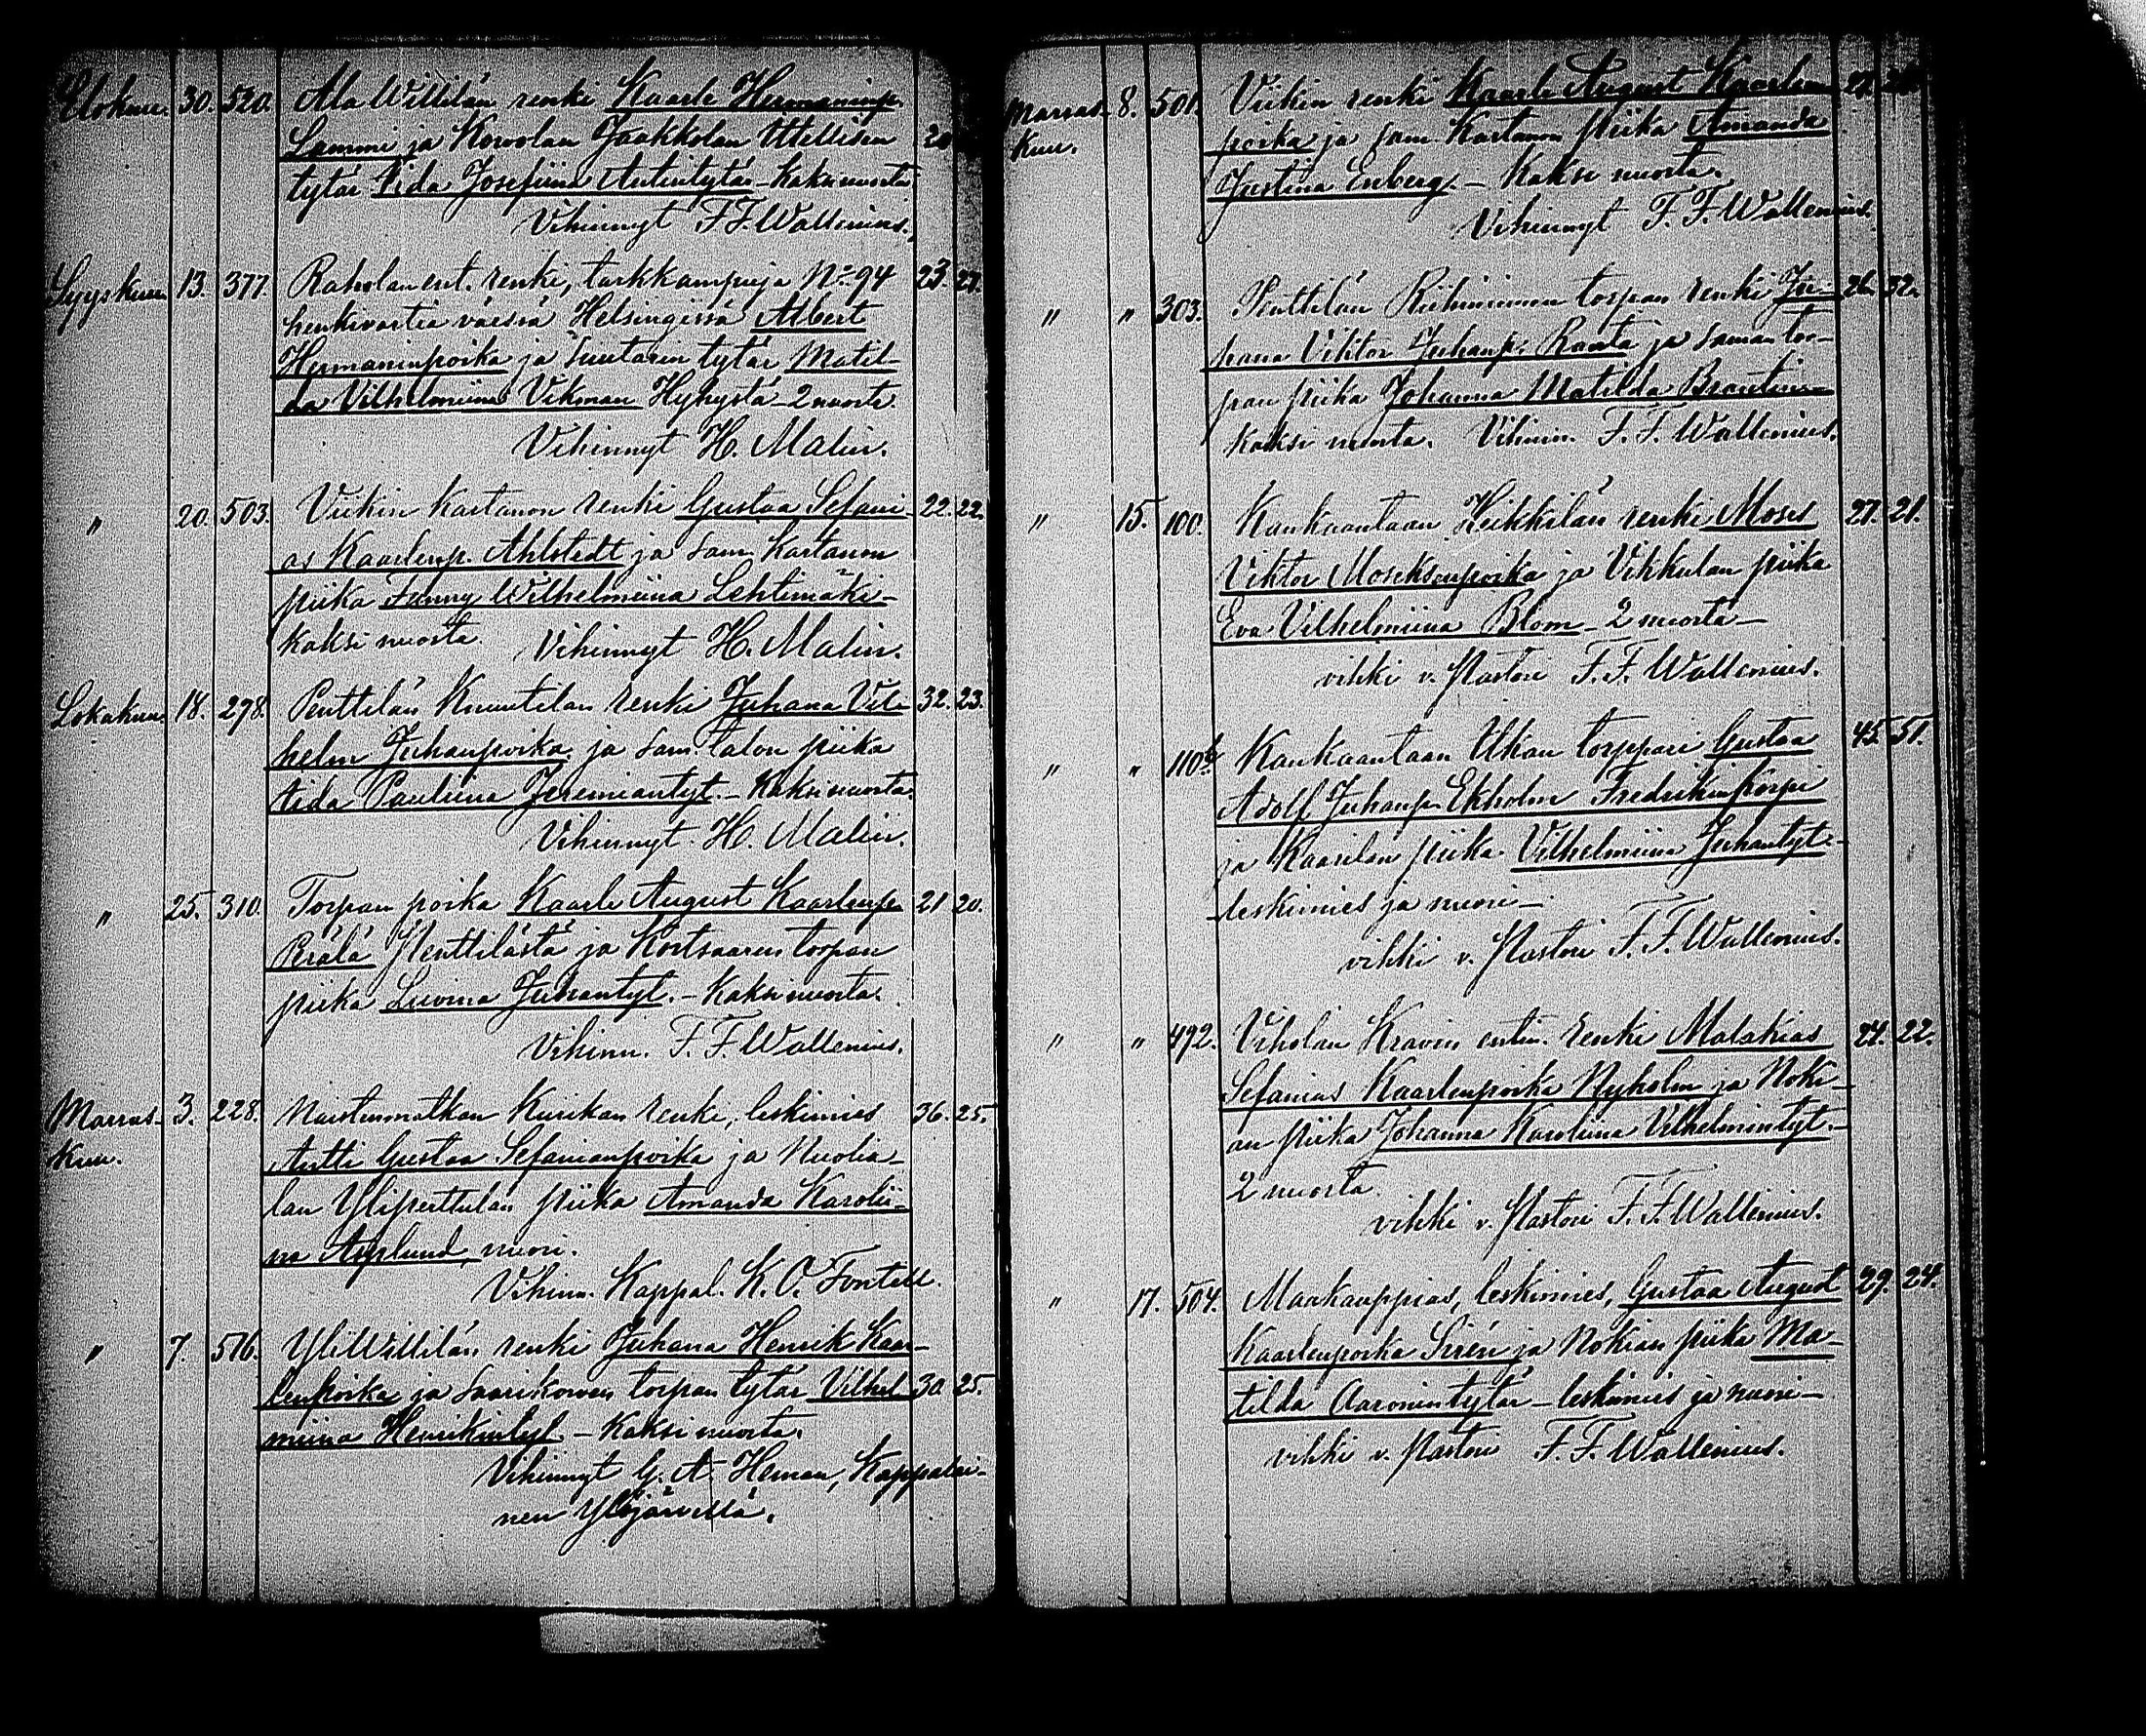 Elokuu. 30. 520. Ala Willilän renki Kaarle Hermaninp.
Lammi ja Korvolan Jaakkolan itellisen 20
tytär Iida Josefiina Antintytär – Kaksi nuorta.
Vihinnyt F. F. Wallenius.
Syyskuu. 13. 377. Raholan ent. renki, tarkkampuja No 94 23. 27.
henkivartia väessä Helsingissä Albert
Hermaninpoika ja suutarin tytär Matil-
da Vilhelmiina Vikman Hyhystä – 2 nuorta.
Vihinnyt H. Malin.
" 20. 503. Viikin Kartanon renki Gustaa Sefani- 22. 22.
as Kaarlenp. Ahlstedt ja sam. Kartanon
piika Fanny Wilhelmiina Lehtimäki –
kaksi nuorta Vihinnyt H. Malin.
Lokakuu. 18. 278. Penttilän Knuutilan renki Juhana Vil- 32. 23.
helm Juhanpoika ja sam. talon piika
Aida Pauliina Jeremiantyt. – Kaksi nuorta.
Vihinnyt H. Malin.
" 25. 310. Torpan poika Kaarle August Kaarlenp. 21 20.
Perälä Penttilästä ja Kortsaaren torpan
piika Luovina Juhantyt. – Kaksi nuorta.
Vihinn. F. F. Wallenius.
Marras- 3. 228. Naistenmatkan Kurikan renki, leskimies 36. 25.
kuu.
Antti Gustaa Sefanianpoika ja Nuolia-
lan Ylipertulan piika Amanda Karolii-
na Asplund, nuori.
Vihinn. Kappal. K. O. Fontell.
" 7. 516. YliWillilän renki Juhana Henrik Kaar-
lenpoika ja Saarikowen torpan tytär Vilhel- 30. 25.
miina Henrikintyt. – Kaksi nuorta.
Vihinnyt G. A. Heman, Kappalai-
nen Ylöjärvellä.
Marras- 8. 501. Viikin renki Kaarle August Kaarlen-
kuu. poika ja sam. Kartanon piika Amanda
Justina Enberg. – Kaksi nuorta.
Vihinnyt F. F. Wallenius.
" " 303. Penttilän Riihiniemen torpan renki Ju- 26. 32.
hana Viktor Juhanp. Ranta ja saman tor-
pan piika Johanna Matilda Brantin –
kaksi nuorta. Vihinn. F. F. Wallenius.
" 15. 100. Kankaantaan Heikkilän renki Moses 27. 21.
Viktor Moseksenpoika ja Vikkulan piika
Eva Vilhelmiina Blom – 2 nuorta –
vihki v. Pastori F. F. Wallenius.
" " 110 Kankaantaan Ukan torppari Gustaa 45. 51.
Adolf Juhanp. Ekholm Fredrikinpoja
ja Kaarilan piika Vilhelmiina Juhantyt. –
leskimies ja nuori –
vihki v. Pastori F. F. Wallenius.
" " 492. Viholan Kravin entin. renki Malakias 24. 22.
Sefanias Kaarlenpoika Nyholm ja Noki-
an piika Johanna Karoliina Vilhelmintyt. –
2 nuorta.
vihki v. Pastori F. F. Wallenius.
" 17. 504. Maakauppias, leskimies, Gustaa August 29. 24.
Kaarlenpoika Sirén ja Nokian piika Ma-
tilda Aaronintytär – leskimies ja nuori –
vihki v. Pastori F. F. Wallenius.